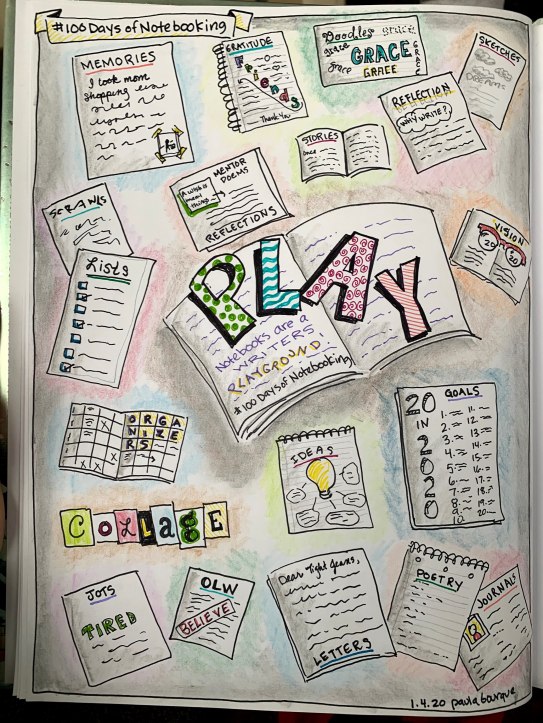 #100 Days of Notebooking
MEMORIES
I took mom
shopping
GRATITUDE
Friends
Thank You
Doodles GRACE
grace GRACE GRACE
grace GRACE
SKETCHES
DREAM
REFLECTION
WHY WRITE?
STORIES
Once
MENTOR
POEMS
A wish is
many
things...
REFLECTIONS
SCRAWLS
VISION
20 20
Lists
PLAY
Notebooks are a
WRITERS
PLAYGROUND!
#100 Days of Notebooking
ORGA
NIZE
RS
IDEAS
20 GOALS
IN
2020
1. 11.
2. 12.
3. 13.
4. 14.
5. 15.
6. 16.
7. 17.
8. 18.
9. 19.
10. 20.
COLLAGE
JOTS
TIRED
OLW
BELIEVE
Dear Tight Jeans,
LETTERS
POETRY
JOURNALS
1.4.20 paula bourque